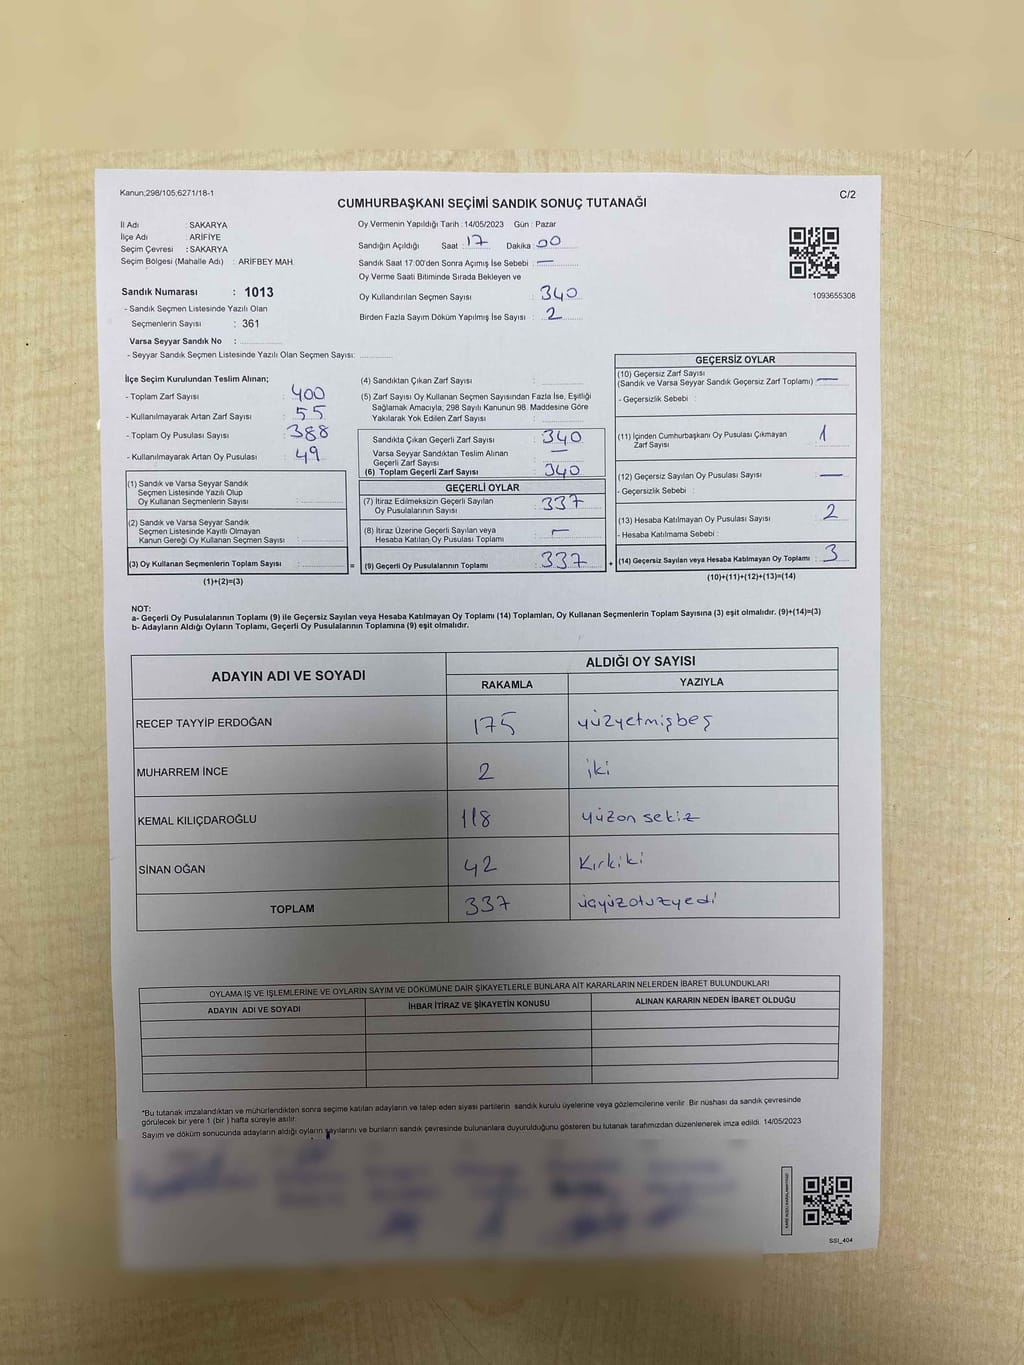 Kanun;298/105,6271/18-1
C/2
CUMHURBAŞKANI SEÇİMİ SANDIK SONUÇ TUTANAĞI
İl Adı : SAKARYA
İlçe Adı : ARİFİYE
Seçim Çevresi : SAKARYA
Seçim Bölgesi (Mahalle Adı) : ARİFBEY MAH.
Sandık Numarası : 1013
- Sandık Seçmen Listesinde Yazılı Olan
Seçmenlerin Sayısı : 361
Varsa Seyyar Sandık No :
- Seyyar Sandık Seçmen Listesinde Yazılı Olan Seçmen Sayısı:
Oy Vermenin Yapıldığı Tarih :14/05/2023 Gün : Pazar
Sandığın Açıldığı Saat : 17 Dakika : 00
Sandık Saat 17:00'den Sonra Açımış İse Sebebi : —
Oy Verme Saati Bitiminde Sırada Bekleyen ve
Oy Kullandırılan Seçmen Sayısı : 340
Birden Fazla Sayım Döküm Yapılmış İse Sayısı : 2
1093655308
İlçe Seçim Kurulundan Teslim Alınan;
- Toplam Zarf Sayısı : 400
- Kullanılmayarak Artan Zarf Sayısı : 55
- Toplam Oy Pusulası Sayısı : 388
- Kullanılmayarak Artan Oy Pusulası : 49
(1) Sandık ve Varsa Seyyar Sandık
Seçmen Listesinde Yazılı Olup
Oy Kullanan Seçmenlerin Sayısı :
(2) Sandık ve Varsa Seyyar Sandık
Seçmen Listesinde Kayıtlı Olmayan
Kanun Gereği Oy Kullanan Seçmen Sayısı :
(3) Oy Kullanan Seçmenlerin Toplam Sayısı :
(1)+(2)=(3)
=
(4) Sandıktan Çıkan Zarf Sayısı :
(5) Zarf Sayısı Oy Kullanan Seçmen Sayısından Fazla İse, Eşitliği
Sağlamak Amacıyla, 298 Sayılı Kanunun 98. Maddesine Göre
Yakılarak Yok Edilen Zarf Sayısı :
Sandıkta Çıkan Geçerli Zarf Sayısı : 340
Varsa Seyyar Sandıktan Teslim Alınan
Geçerli Zarf Sayısı : —
(6) Toplam Geçerli Zarf Sayısı : 340
GEÇERLİ OYLAR
(7) İtiraz Edilmeksizin Geçerli Sayılan
Oy Pusulalarının Sayısı : 337
(8) İtiraz Üzerine Geçerli Sayılan veya
Hesaba Katılan Oy Pusulası Toplamı : —
(9) Geçerli Oy Pusulalarının Toplamı : 337
+
GEÇERSİZ OYLAR
(10) Geçersiz Zarf Sayısı
(Sandık ve Varsa Seyyar Sandık Geçersiz Zarf Toplamı) : —
- Geçersizlik Sebebi :
(11) İçinden Cumhurbaşkanı Oy Pusulası Çıkmayan
Zarf Sayısı : 1
(12) Geçersiz Sayılan Oy Pusulası Sayısı : —
- Geçersizlik Sebebi :
(13) Hesaba Katılmayan Oy Pusulası Sayısı : 2
- Hesaba Katılmama Sebebi :
(14) Geçersiz Sayılan veya Hesaba Katılmayan Oy Toplamı : 3
(10)+(11)+(12)+(13)=(14)
NOT:
a- Geçerli Oy Pusulalarının Toplamı (9) ile Geçersiz Sayılan veya Hesaba Katılmayan Oy Toplamı (14) Toplamları, Oy Kullanan Seçmenlerin Toplam Sayısına (3) eşit olmalıdır. (9)+(14)=(3)
b- Adayların Aldığı Oyların Toplamı, Geçerli Oy Pusulalarının Toplamına (9) eşit olmalıdır.
ADAYIN ADI VE SOYADI ALDIĞI OY SAYISI
RAKAMLA YAZIYLA
RECEP TAYYİP ERDOĞAN 175 yüzyetmişbeş
MUHARREM İNCE 2 iki
KEMAL KILIÇDAROĞLU 118 yüzon sekiz
SİNAN OĞAN 42 Kırkiki
TOPLAM 337 üçyüzotuzyedi
OYLAMA İŞ VE İŞLEMLERİNE VE OYLARIN SAYIM VE DÖKÜMÜNE DAİR ŞİKAYETLERLE BUNLARA AİT KARARLARIN NELERDEN İBARET BULUNDUKLARI
ADAYIN ADI VE SOYADI İHBAR İTİRAZ VE ŞİKAYETİN KONUSU ALINAN KARARIN NEDEN İBARET OLDUĞU
*Bu tutanak imzalandıktan ve mühürlendikten sonra seçime katılan adayların ve talep eden siyasi partilerin sandık kurulu üyelerine veya gözlemcilerine verilir. Bir nüshası da sandık çevresinde
görülecek bir yere 1 (bir ) hafta süreyle asılır.
Sayım ve döküm sonucunda adayların aldığı oyların sayılarını ve bunların sandık çevresinde bulunanlara duyurulduğunu gösteren bu tutanak tarafımızdan düzenlenerek imza edildi. 14/05/2023
SSI_404